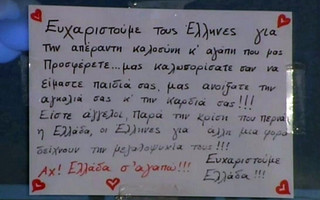 Ευχαριστούμε τους Έλληνες για
την απέραντη καλοσύνη κ' αγάπη που μας
προσφέρετε...μας καλωσορίσατε σαν να
είμαστε παιδιά σας, μας ανοίξατε την
αγκαλιά σας κ' την καρδιά σας!!!
Είστε άγγελοι. Παρά την κρίση που περνά
η Ελλάδα, οι Έλληνες για άλλη μια φορά
δείχνουν την μεγαλοψυχία τους!!!
Ευχαριστούμε
Αχ! Ελλάδα σ' αγαπώ!!! Ελλάδα!!!